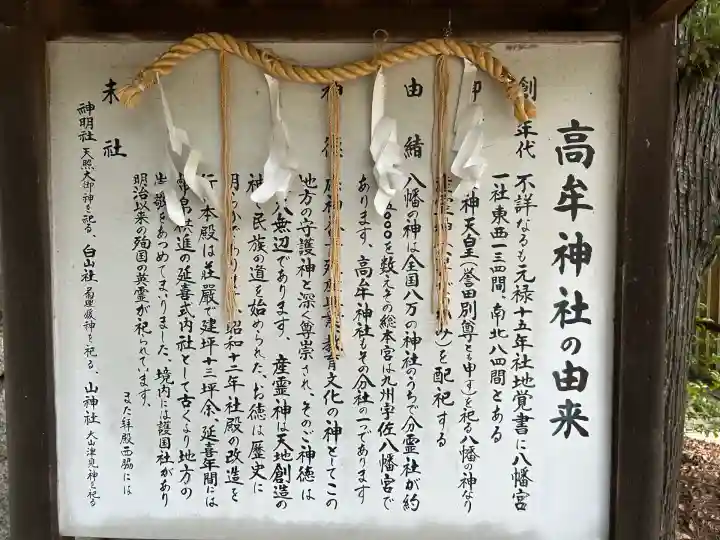 高牟神社の由来
創 年代 不詳なるも元禄十五年社地覚書に八幡宮
一社東西一三四間、南北八四間とある
神天皇(誉田別尊とも申す)を祀る八幡の神なり
を配祀する
由緒 八幡の神は全国八万の神社のうちで分霊社が約
五〇〇〇を数えその総本宮は九州宇佐八幡宮で
あります、高牟神社もその分社の一つであります
神徳 文化の神としてこの
地方の守護神と深く尊崇され、そのご神徳は
無辺であります、産霊神は天地創造の
神 民族の道を始められた、お徳は歴史に
明らか 昭和十二年社殿の改造を
行 本殿は荘厳で建坪十三坪余、延喜年間には
幣帛供進の延喜式内社として古くより地方の
崇敬をあつめてまいりました、境内には護国社があり
明治以来の殉国の英霊が祀られています。
また拝殿西脇には
末社 神明社 天照大御神を祀る、白山社 菊理媛神を祀る、山神社 大山津見神を祀る